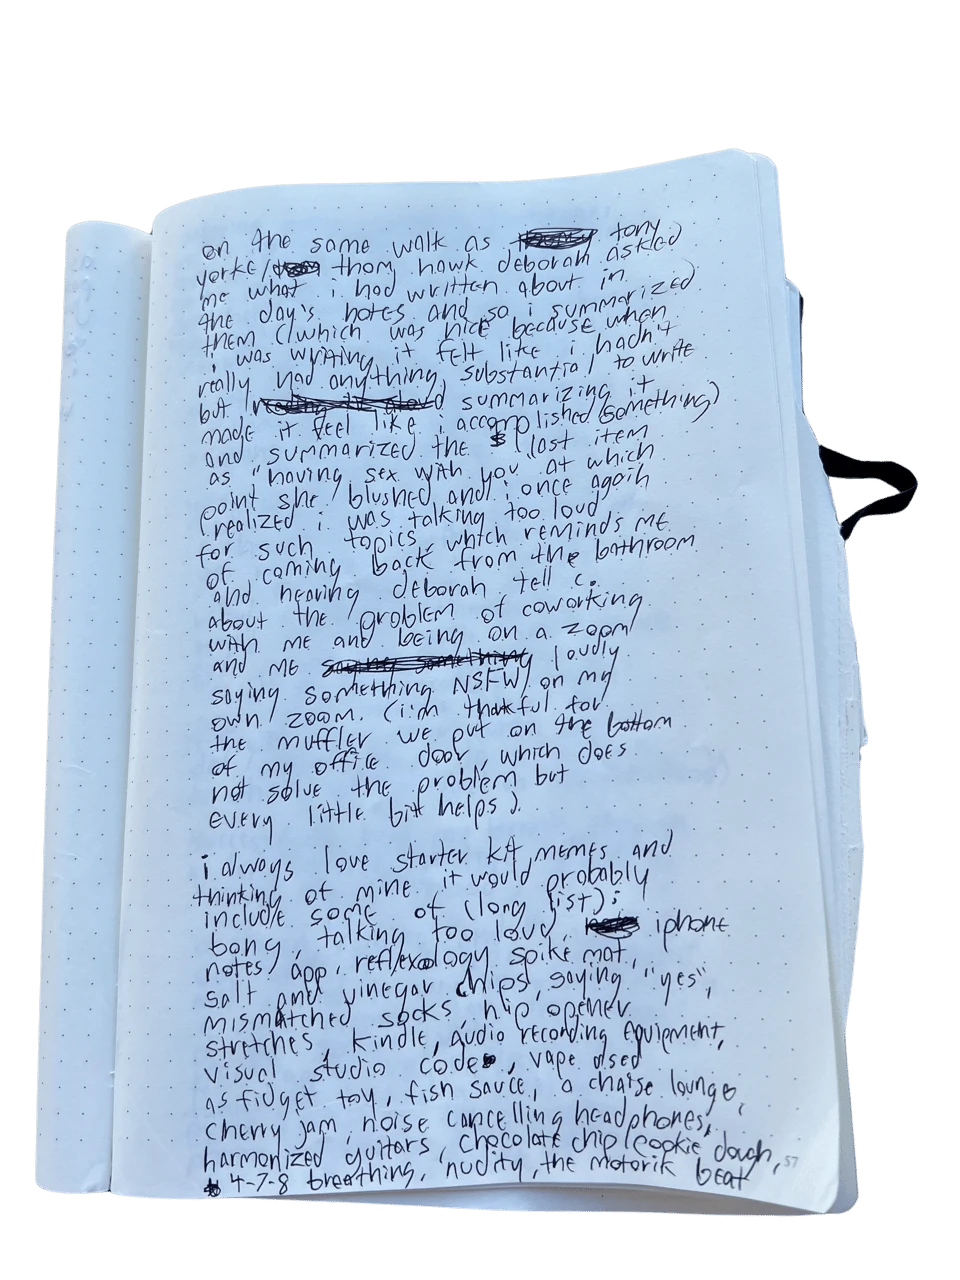 on the same walk as tony
yorke/ thom hawk deborah asked
me what i had written about in
the day's notes and so i summarized
them (which was nice because when
i was writing it felt like i hadn't
really had anything substantial to write
but summarizing it
made it feel like i accomplished something)
and summarized the last item
as "having sex with you" at which
point she blushed and i once again
realized i was talking too loud
for such topics, which reminds me
of coming back from the bathroom
and hearing deborah tell c.
about the problem of coworking
with me and being on a zoom
and me loudly
saying something NSFW on my
own zoom. (i'm thankful for
the muffler we put on the bottom
of my office door, which does
not solve the problem but
every little bit helps).
i always love starter kit memes and
thinking of mine it would probably
include some of (long list):
bong, talking too loud, iphone
notes app, reflexology spike mat,
salt and vinegar chips, saying "yes",
mismatched socks, hip opener
stretches, kindle, audio recording equipment,
visual studio code, vape used
as fidget toy, fish sauce, a chaise lounge,
cherry jam, noise cancelling headphones,
harmonized guitars, chocolate chip cookie dough,
4-7-8 breathing, nudity, the motorik beat
57